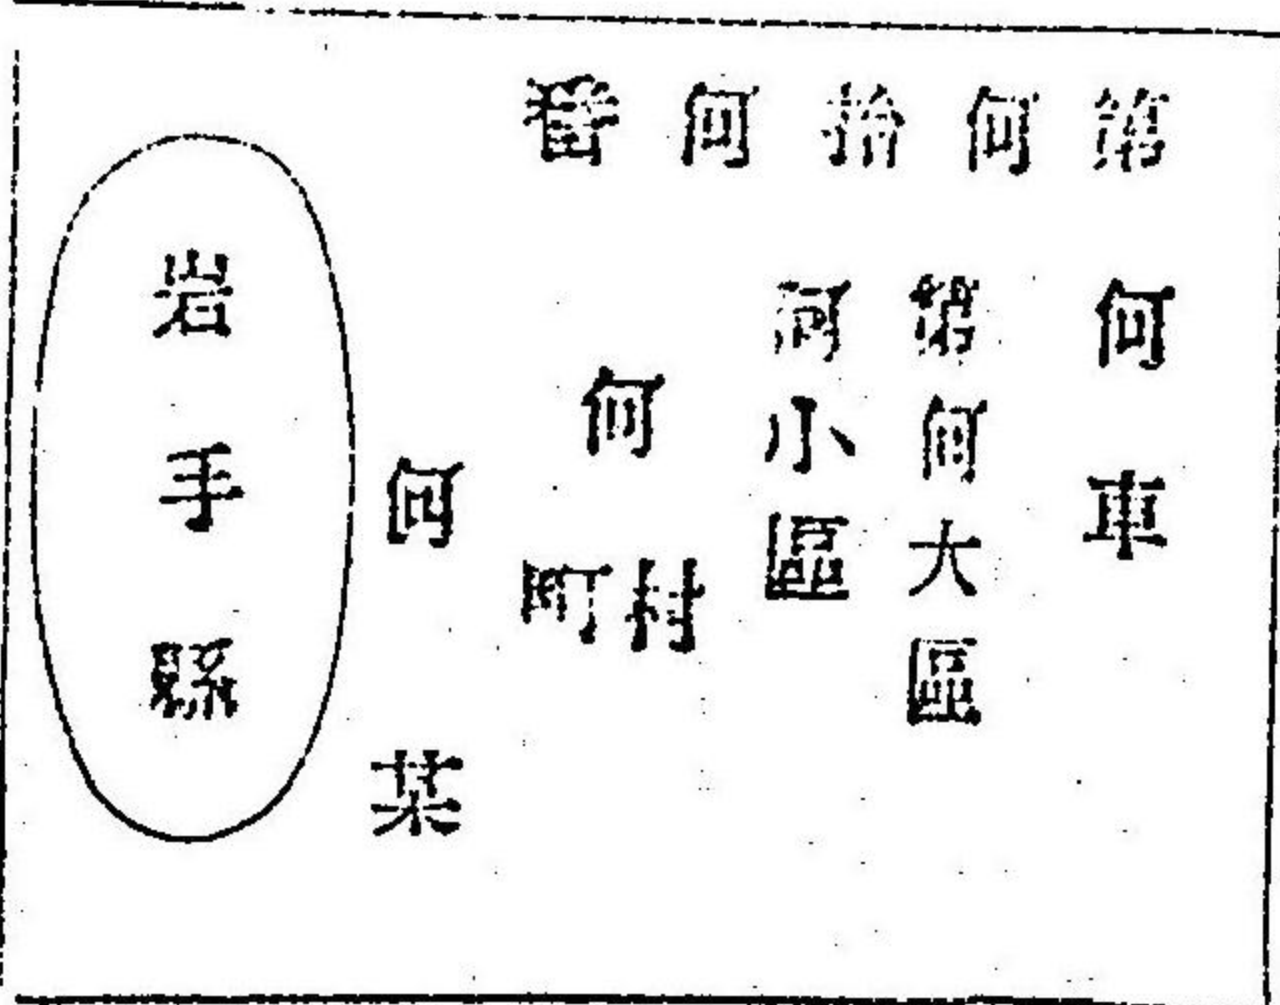 第何拾何番
何車
第何大區
何小區
何村町
何某
岩手縣